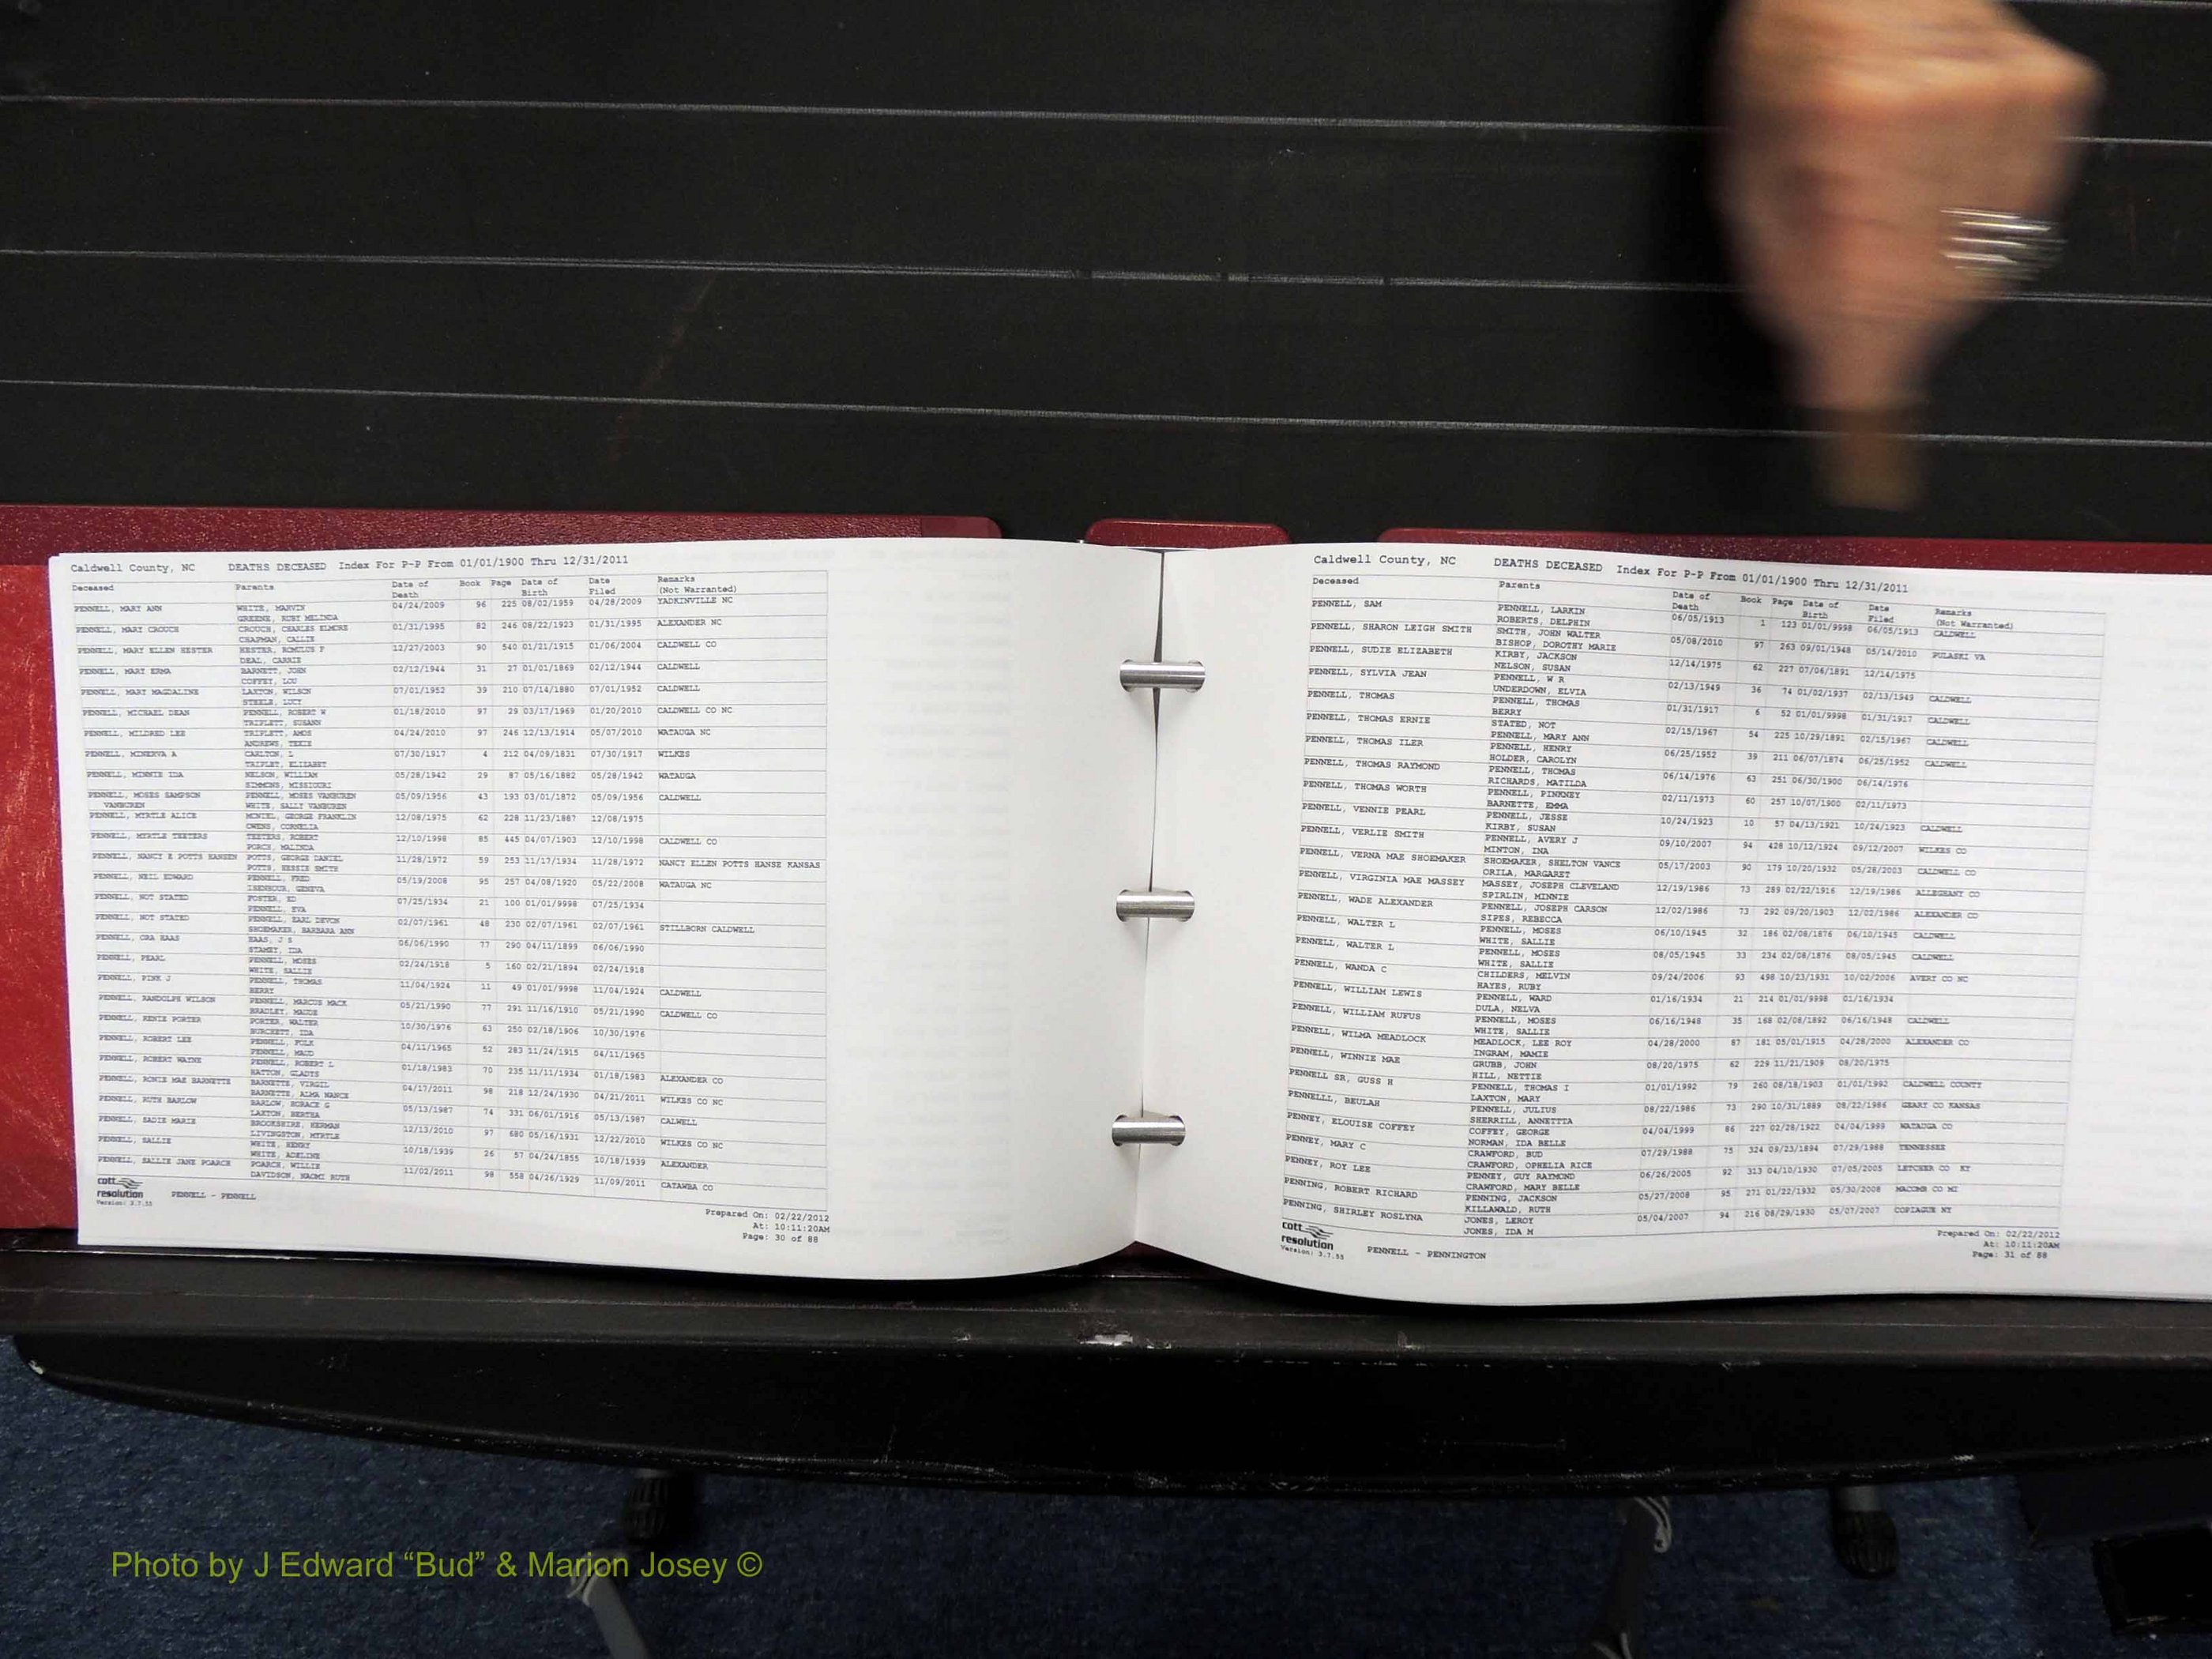 Caldwell County, NC DEATHS DECEASED Index For P-P From 01/01/1900 Thru 12/31/2011
Deceased Parents Date of Death Book Page Date of Birth Date Filed Remarks (Not Warranted)
PENNELL, MARY ANN WHITE, MARVIN 04/24/2009 96 225 08/02/1959 04/28/2009 YADKINVILLE NC
GREENE, RUBY MELINDA
PENNELL, MARY CROUCH CROUCH, CHARLES ELMORE 01/31/1995 82 246 08/22/1923 01/31/1995 ALEXANDER NC
CHAPMAN, CALLIE
PENNELL, MARY ELLEN HESTER HESTER, ROMULUS F 12/27/2003 90 540 01/21/1915 01/06/2004 CALDWELL CO
DEAL, CARRIE
PENNELL, MARY ERMA BARNETT, JOHN 02/12/1944 31 27 01/01/1869 02/12/1944 CALDWELL
COFFEY, LOU
PENNELL, MARY MAGDALINE LAXTON, WILSON 07/01/1952 39 210 07/14/1880 07/01/1952 CALDWELL
STEELE, LUCY
PENNELL, MICHAEL DEAN PENNELL, ROBERT W 01/18/2010 97 29 03/17/1969 01/20/2010 CALDWELL CO NC
TRIPLETT, SUSANN
PENNELL, MILDRED LEE TRIPLETT, AMOS 04/24/2010 97 246 12/13/1914 05/07/2010 WATAUGA NC
ANDREWS, TEXIE
PENNELL, MINERVA A CARLTON, L 07/30/1917 4 212 04/09/1831 07/30/1917 WILKES
TRIPLET, ELIZABET
PENNELL, MINNIE IDA NELSON, WILLIAM 05/28/1942 29 87 05/16/1882 05/28/1942 WATAUGA
SIMMONS, MISSOURI
PENNELL, MOSES SAMPSON PENNELL, MOSES VANBUREN 05/09/1956 43 193 03/01/1872 05/09/1956 CALDWELL
VANBUREN WHITE, SALLY VANBUREN
PENNELL, MYRTLE ALICE MCNIEL, GEORGE FRANKLIN 12/08/1975 62 228 11/23/1887 12/08/1975
OWENS, CORNELIA
PENNELL, MYRTLE TEETERS TEETERS, ROBERT 12/10/1998 85 445 04/07/1903 12/10/1998 CALDWELL CO
PORCH, MALINDA
PENNELL, NANCY E POTTS HANSEN POTTS, GEORGE DANIEL 11/28/1972 59 253 11/17/1934 11/28/1972 NANCY ELLEN POTTS HANSE KANSAS
POTTS, HESSIE SMITH
PENNELL, NEIL EDWARD PENNELL, FRED 05/19/2008 95 257 04/08/1920 05/22/2008 WATAUGA NC
ISENHOUR, GENEVA
PENNELL, NOT STATED FOSTER, ED 07/25/1934 21 100 01/01/9998 07/25/1934
PENNELL, EVA
PENNELL, NOT STATED PENNELL, EARL DEVON 02/07/1961 48 230 02/07/1961 02/07/1961 STILLBORN CALDWELL
SHOEMAKER, BARBARA ANN
PENNELL, ORA HAAS HAAS, J S 06/06/1990 77 290 04/11/1899 06/06/1990
STAMEY, IDA
PENNELL, PEARL PENNELL, MOSES 02/24/1918 5 160 02/21/1894 02/24/1918
WHITE, SALLIE
PENNELL, PINK J PENNELL, THOMAS 11/04/1924 11 49 01/01/9998 11/04/1924 CALDWELL
BERRY
PENNELL, RANDOLPH WILSON PENNELL, MARCUS MACK 05/21/1990 77 291 11/16/1910 05/21/1990 CALDWELL CO
BRADLEY, MAUDE
PENNELL, RENIE PORTER PORTER, WALTER 10/30/1976 63 250 02/18/1906 10/30/1976
BURCHETT, IDA
PENNELL, ROBERT LEE PENNELL, POLK 04/11/1965 52 283 11/24/1915 04/11/1965
PENNELL, MAUD
PENNELL, ROBERT WAYNE PENNELL, ROBERT L 01/18/1983 70 235 11/11/1934 01/18/1983 ALEXANDER CO
HATTON, GLADYS
PENNELL, ROXIE MAE BARNETTE BARNETTE, VIRGIL 04/17/2011 98 218 12/24/1930 04/21/2011 WILKES CO NC
BARNETTE, ALMA NANCE
PENNELL, RUTH BARLOW BARLOW, HORACE G 05/13/1987 74 331 06/01/1916 05/13/1987 CALWELL
LAXTON, BERTHA
PENNELL, SADIE MARIE BROOKSHIRE, HERMAN 12/13/2010 97 680 05/16/1931 12/22/2010 WILKES CO NC
LIVINGSTON, MYRTLE
PENNELL, SALLIE WHITE, HENRY 10/18/1939 26 57 04/24/1855 10/18/1939 ALEXANDER
WHITE, ADELINE
PENNELL, SALLIE JANE POARCH POARCH, WILLIE 11/02/2011 98 558 04/26/1929 11/09/2011 CATAWBA CO
DAVIDSON, NAOMI RUTH
cott
resolution
Version: 3.7.55
PENNELL - PENNELL
Prepared On: 02/22/2012
At: 10:11:20AM
Page: 30 of 88
Caldwell County, NC DEATHS DECEASED Index For P-P From 01/01/1900 Thru 12/31/2011
Deceased Parents Date of Death Book Page Date of Birth Date Filed Remarks (Not Warranted)
PENNELL, SAM PENNELL, LARKIN 06/05/1913 1 123 01/01/9998 06/05/1913 CALDWELL
ROBERTS, DELPHIN
PENNELL, SHARON LEIGH SMITH SMITH, JOHN WALTER 05/08/2010 97 263 09/01/1948 05/14/2010 PULASKI VA
BISHOP, DOROTHY MARIE
PENNELL, SUDIE ELIZABETH KIRBY, JACKSON 12/14/1975 62 227 07/06/1891 12/14/1975
NELSON, SUSAN
PENNELL, SYLVIA JEAN PENNELL, W R 02/13/1949 36 74 01/02/1937 02/13/1949 CALDWELL
UNDERDOWN, ELVIA
PENNELL, THOMAS PENNELL, THOMAS 01/31/1917 6 52 01/01/9998 01/31/1917 CALDWELL
BERRY
PENNELL, THOMAS ERNIE STATED, NOT 02/15/1967 54 225 10/29/1891 02/15/1967 CALDWELL
PENNELL, MARY ANN
PENNELL, THOMAS ILER PENNELL, HENRY 06/25/1952 39 211 06/07/1874 06/25/1952 CALDWELL
HOLDER, CAROLYN
PENNELL, THOMAS RAYMOND PENNELL, THOMAS 06/14/1976 63 251 06/30/1900 06/14/1976
RICHARDS, MATILDA
PENNELL, THOMAS WORTH PENNELL, PINKNEY 02/11/1973 60 257 10/07/1900 02/11/1973
BARNETTE, EMMA
PENNELL, VENNIE PEARL PENNELL, JESSE 10/24/1923 10 57 04/13/1921 10/24/1923 CALDWELL
KIRBY, SUSAN
PENNELL, VERLIE SMITH PENNELL, AVERY J 09/10/2007 94 428 10/12/1924 09/12/2007 WILKES CO
MINTON, INA
PENNELL, VERNA MAE SHOEMAKER SHOEMAKER, SHELTON VANCE 05/17/2003 90 179 10/20/1932 05/28/2003 CALDWELL CO
ORILA, MARGARET
PENNELL, VIRGINIA MAE MASSEY MASSEY, JOSEPH CLEVELAND 12/19/1986 73 289 02/22/1916 12/19/1986 ALLEGHANY CO
SPIRLIN, MINNIE
PENNELL, WADE ALEXANDER PENNELL, JOSEPH CARSON 12/02/1986 73 292 09/20/1903 12/02/1986 ALEXANDER CO
SIPES, REBECCA
PENNELL, WALTER L PENNELL, MOSES 06/10/1945 32 186 02/08/1876 06/10/1945 CALDWELL
WHITE, SALLIE
PENNELL, WALTER L PENNELL, MOSES 08/05/1945 33 234 02/08/1876 08/05/1945 CALDWELL
WHITE, SALLIE
PENNELL, WANDA C CHILDERS, MELVIN 09/24/2006 93 498 10/23/1931 10/02/2006 AVERY CO NC
HAYES, RUBY
PENNELL, WILLIAM LEWIS PENNELL, WARD 01/16/1934 21 214 01/01/9998 01/16/1934
DULA, NELVA
PENNELL, WILLIAM RUFUS PENNELL, MOSES 06/16/1948 35 168 02/08/1892 06/16/1948 CALDWELL
WHITE, SALLIE
PENNELL, WILMA MEADLOCK MEADLOCK, LEE ROY 04/28/2000 87 181 05/01/1915 04/28/2000 ALEXANDER CO
INGRAM, MAMIE
PENNELL, WINNIE MAE GRUBB, JOHN 08/20/1975 62 229 11/21/1909 08/20/1975
HILL, NETTIE
PENNELL SR, GUSS H PENNELL, THOMAS I 01/01/1992 79 260 08/18/1903 01/01/1992 CALDWELL COUNTY
LAXTON, MARY
PENNELLL, BEULAH PENNELL, JULIUS 08/22/1986 73 290 10/31/1889 08/22/1986 GEARY CO KANSAS
SHERRILL, ANNETTTA
PENNEY, ELOUISE COFFEY COFFEY, GEORGE 04/04/1999 86 227 02/28/1922 04/04/1999 WATAUGA CO
NORMAN, IDA BELLE
PENNEY, MARY C CRAWFORD, BUD 07/29/1988 75 324 09/23/1894 07/29/1988 TENNESSEE
CRAWFORD, OPHELIA RICE
PENNEY, ROY LEE PENNEY, GUY RAYMOND 06/26/2005 92 313 04/10/1930 07/05/2005 LETCHER CO KY
CRAWFORD, MARY BELLE
PENNING, ROBERT RICHARD PENNING, JACKSON 05/27/2008 95 271 01/22/1932 05/30/2008 MACOMB CO MI
KILLAWALD, RUTH
PENNING, SHIRLEY ROSLYNA JONES, LEROY 05/04/2007 94 216 08/29/1930 05/07/2007 COPIAGUE NY
JONES, IDA M
cott
resolution
Version: 3.7.55
PENNELL - PENNINGTON
Prepared On: 02/22/2012
At: 10:11:20AM
Page: 31 of 88
Photo by J Edward “Bud” & Marion Josey ©